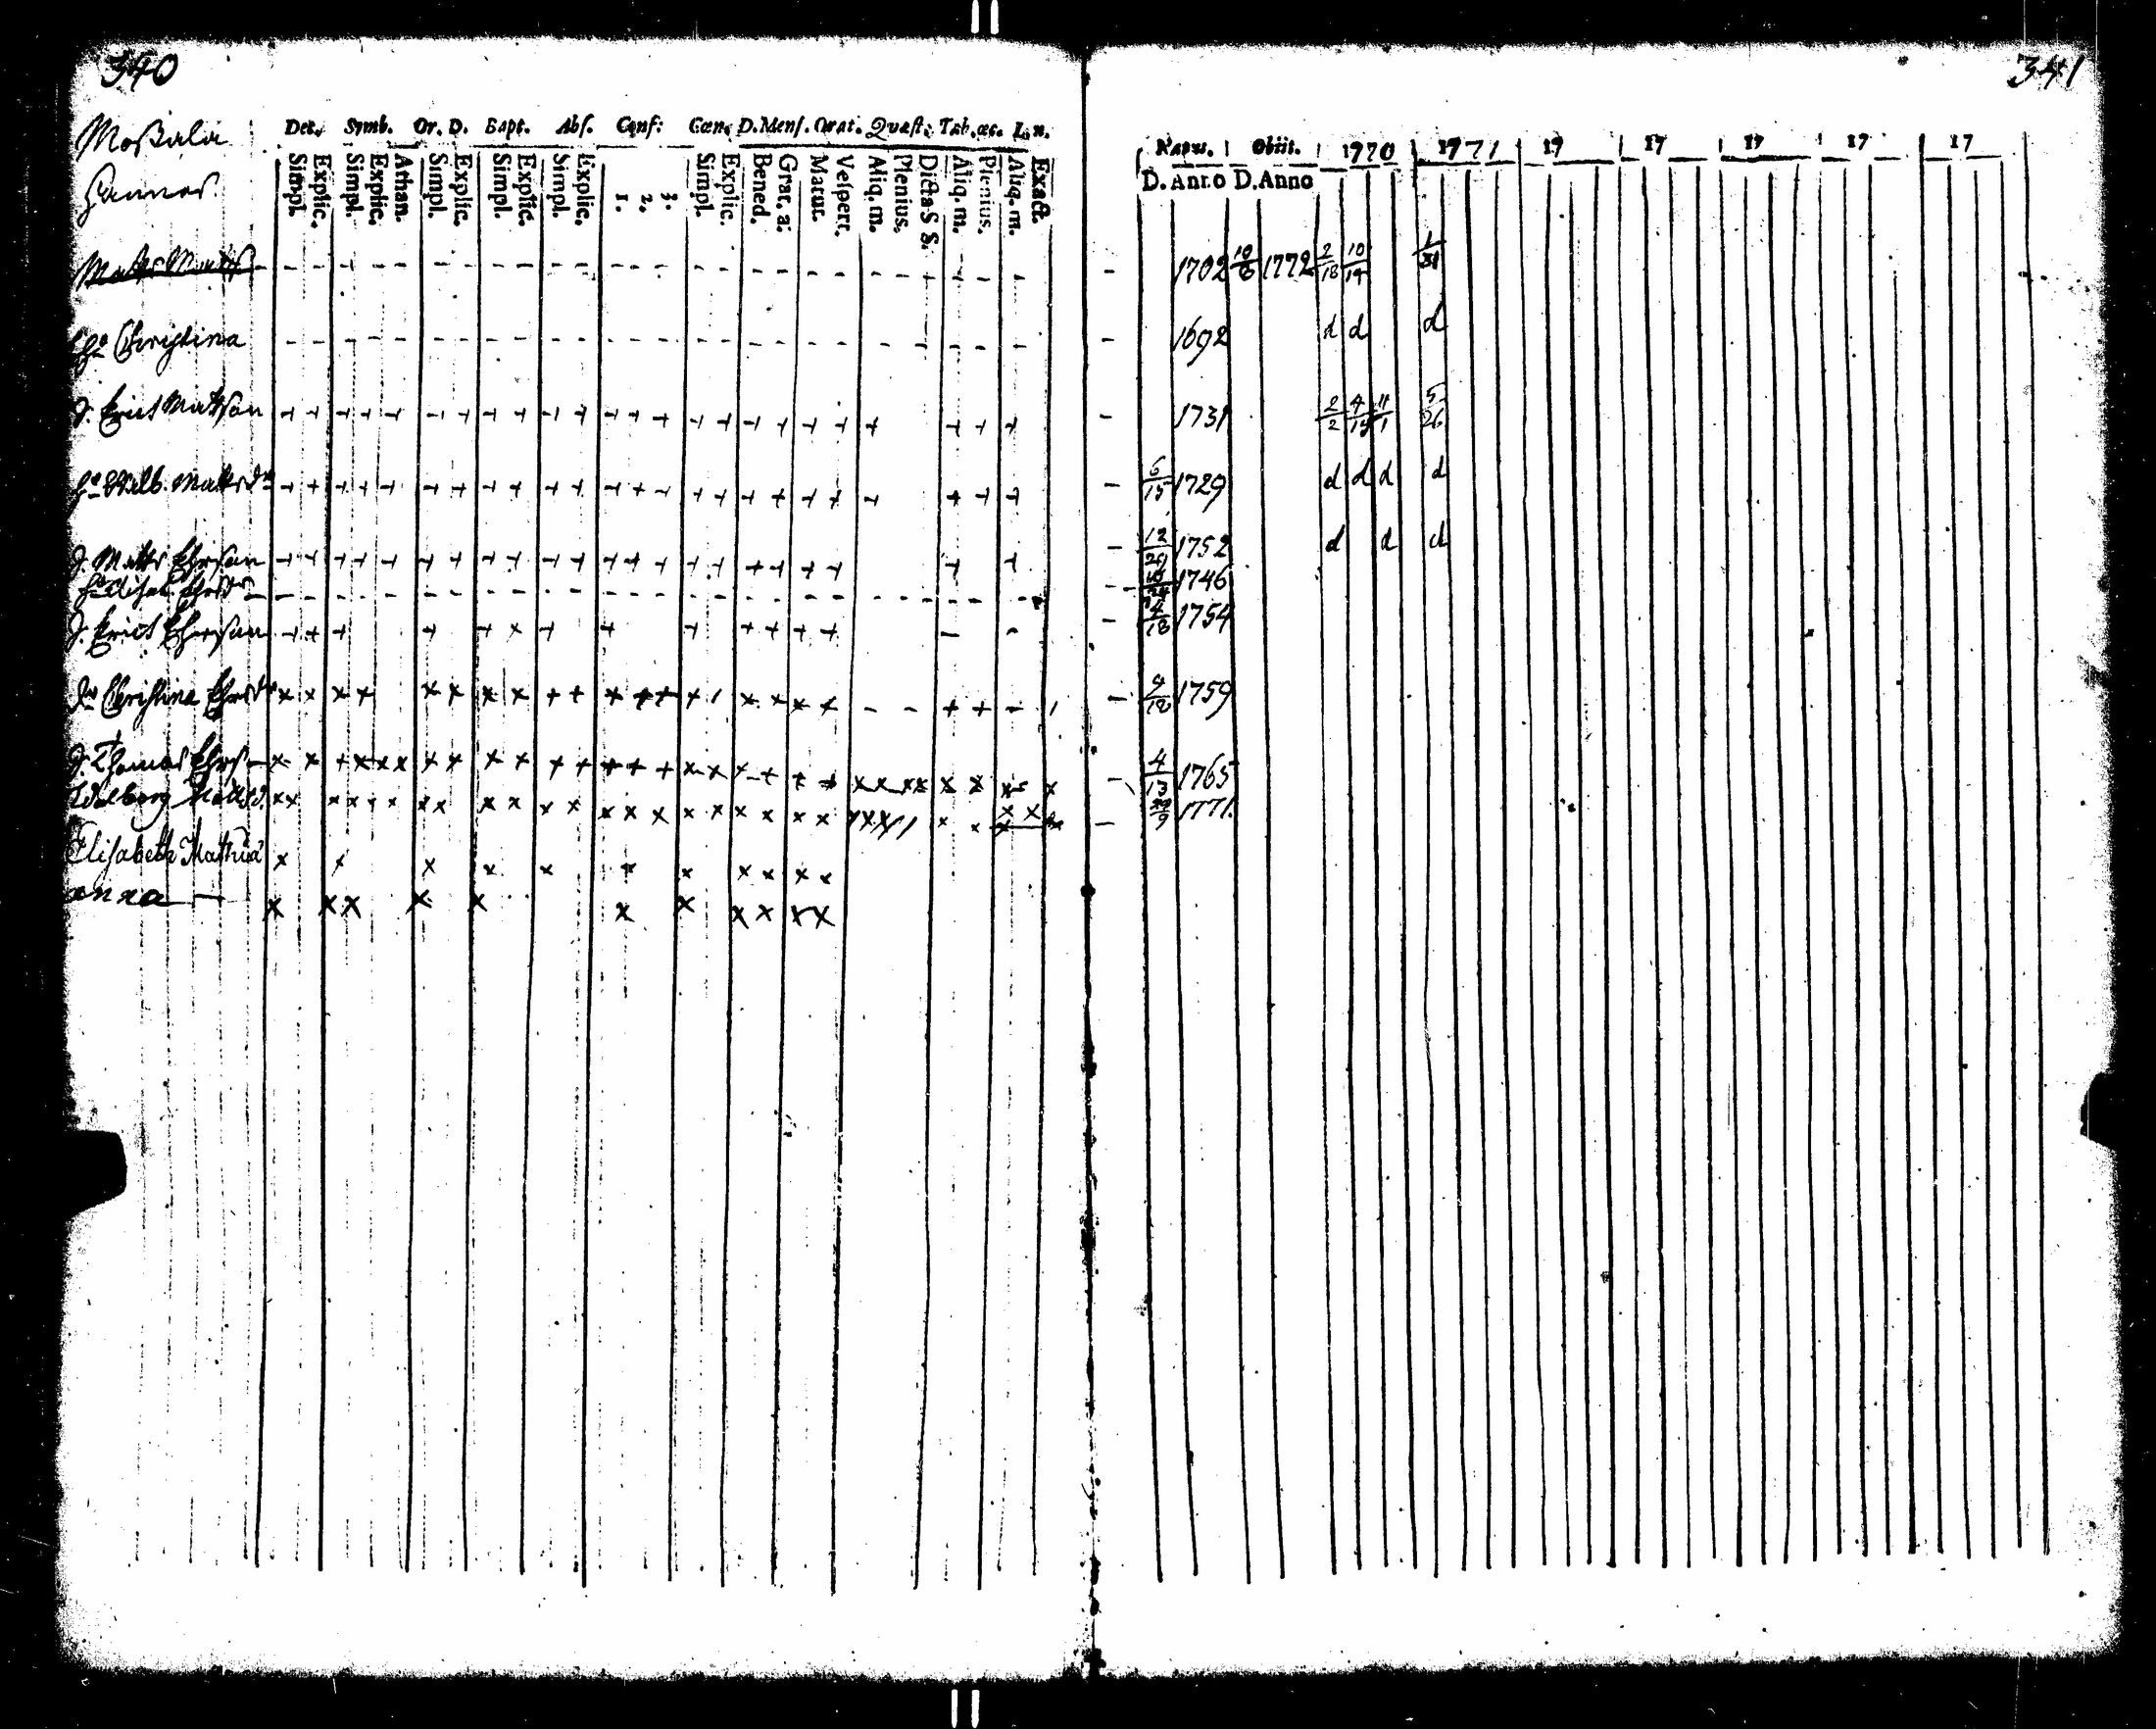 340
Moßala
Hannes
Dec. Symb. Or. D. Bapt. Abs. Conf: Cœn. D.Mens. Orat. Quæst: Tab.œc. L.n.
Simpl. Explic. Simpl. Explic. Athan. Simpl. Explic. Simpl. Explic. Simpl. Explic. 1. 2. 3. Simpl. Explic. Bened. Grat. a. Matut. Vespert. Aliq. m. Plenius. Dicta S S. Aliq. m. Plenius. Aliq. m. Exact.
Matts Matts
h. Christina
d. Eric Mattson
h. Walb. Mattsdr
d. Matts Ehrsson
d. Eric Ehrsson
dr Christina Ehrsdr
d. Thomas Ehrs
Walborg Mattsd.
Elisabeth
anna
341
Natus. Obiit. 1770 1771 17 17 17 17 17
D. Anno D. Anno
1702 10/6 1772 2/18 10/19 1/31
1692 d d d
1731 2/2 4/15 11/1 5/26
6/15 1729 d d d d
12/21 1752 d d d
1746
4/18 1754
9/18 1759
4/13 1765
1771.